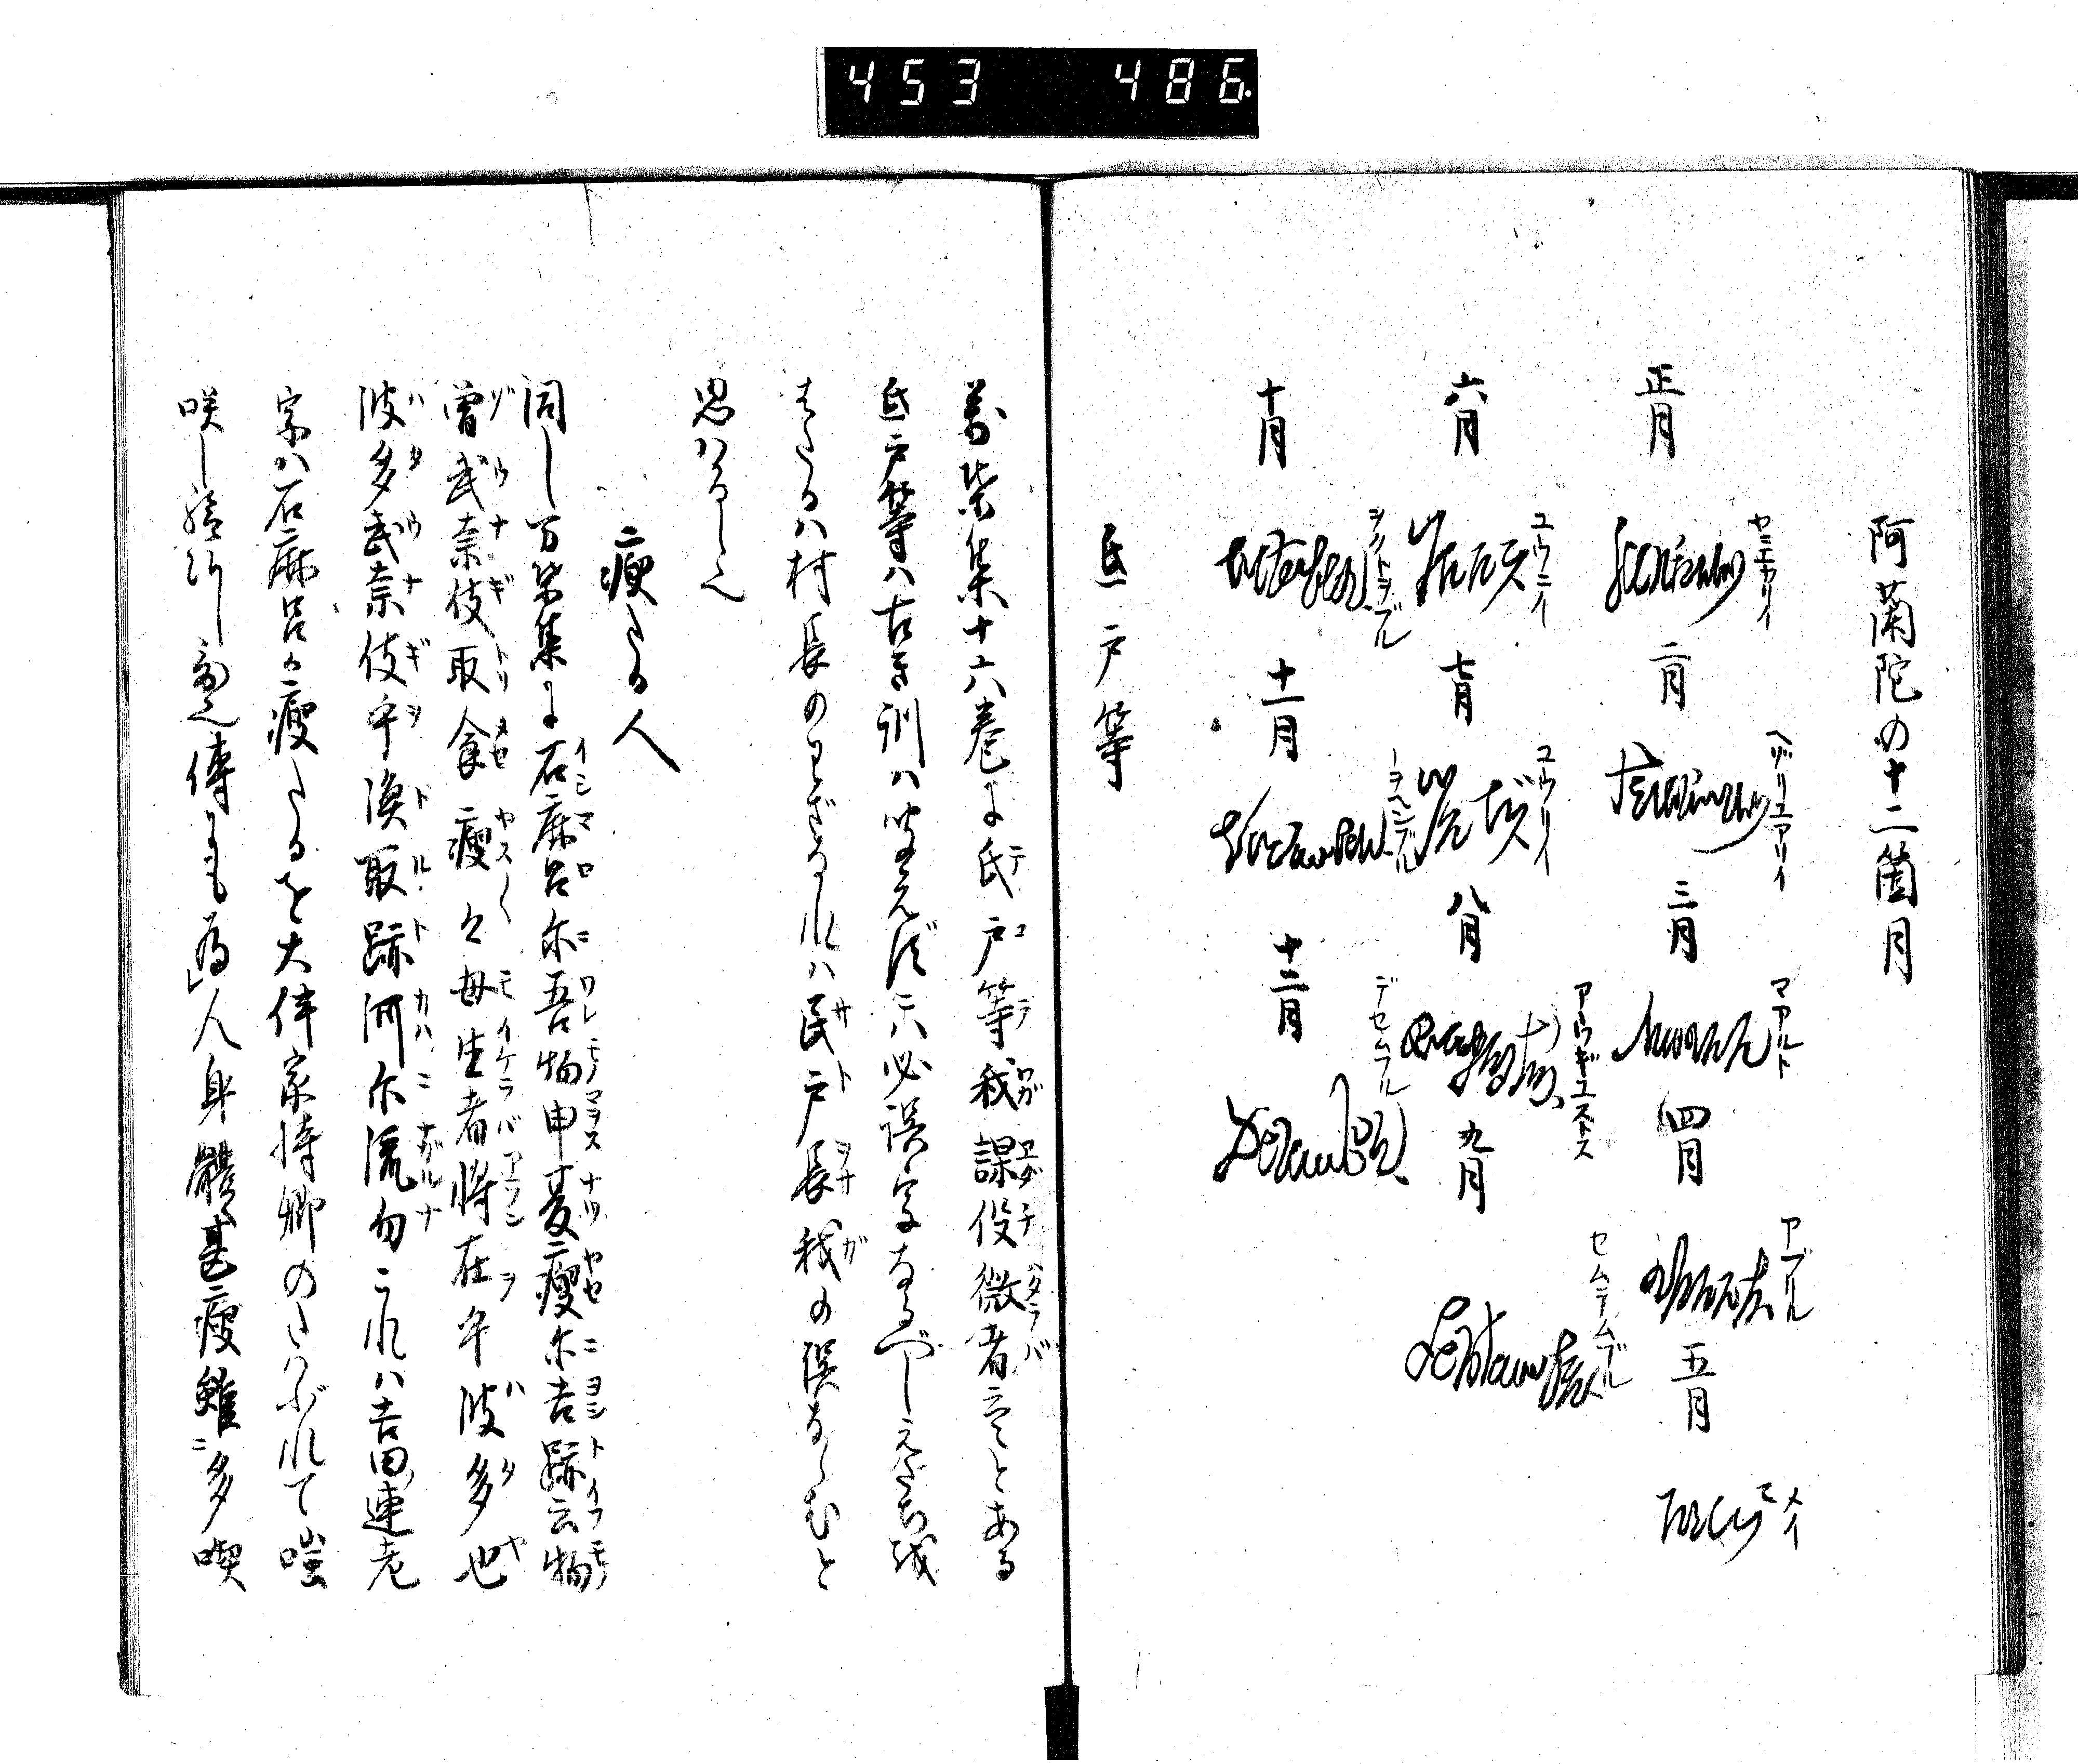 453 486
阿蘭陀の十二箇月
正月 二月 三月 四月 五月
ヤニユワリイ ヘブリユアリイ マアルト アプリル メイ
六月 七月 八月 九月
ユウニイ ユウリイ アウギユストス セムテムブル
十月 十一月 十二月
ヲクトヲブル ノヲヘンブル デセムブル
氐戸等
萬葉集十六巻に氐戸等我課伇微者云々とある
氐戸等ハ古き訓ハ聞えずこハ必誤字なるべしえだち
はたるハ村長のわざなれハ民戸長我の誤ならむと
思ハるゝ也
痩たる人
同し万葉集に石麻呂尓吾物申夏痩尓吉跡云物
曽武奈伎取食 痩々母生者将在乎波多也
波多武奈伎乎漁取跡河尓流勿これハ吉田連老
字ハ石麻呂か痩たるを大伴家持卿のたはぶれて嗤
咲し給ひし歌也傳にも為人身體甚痩雖多喫